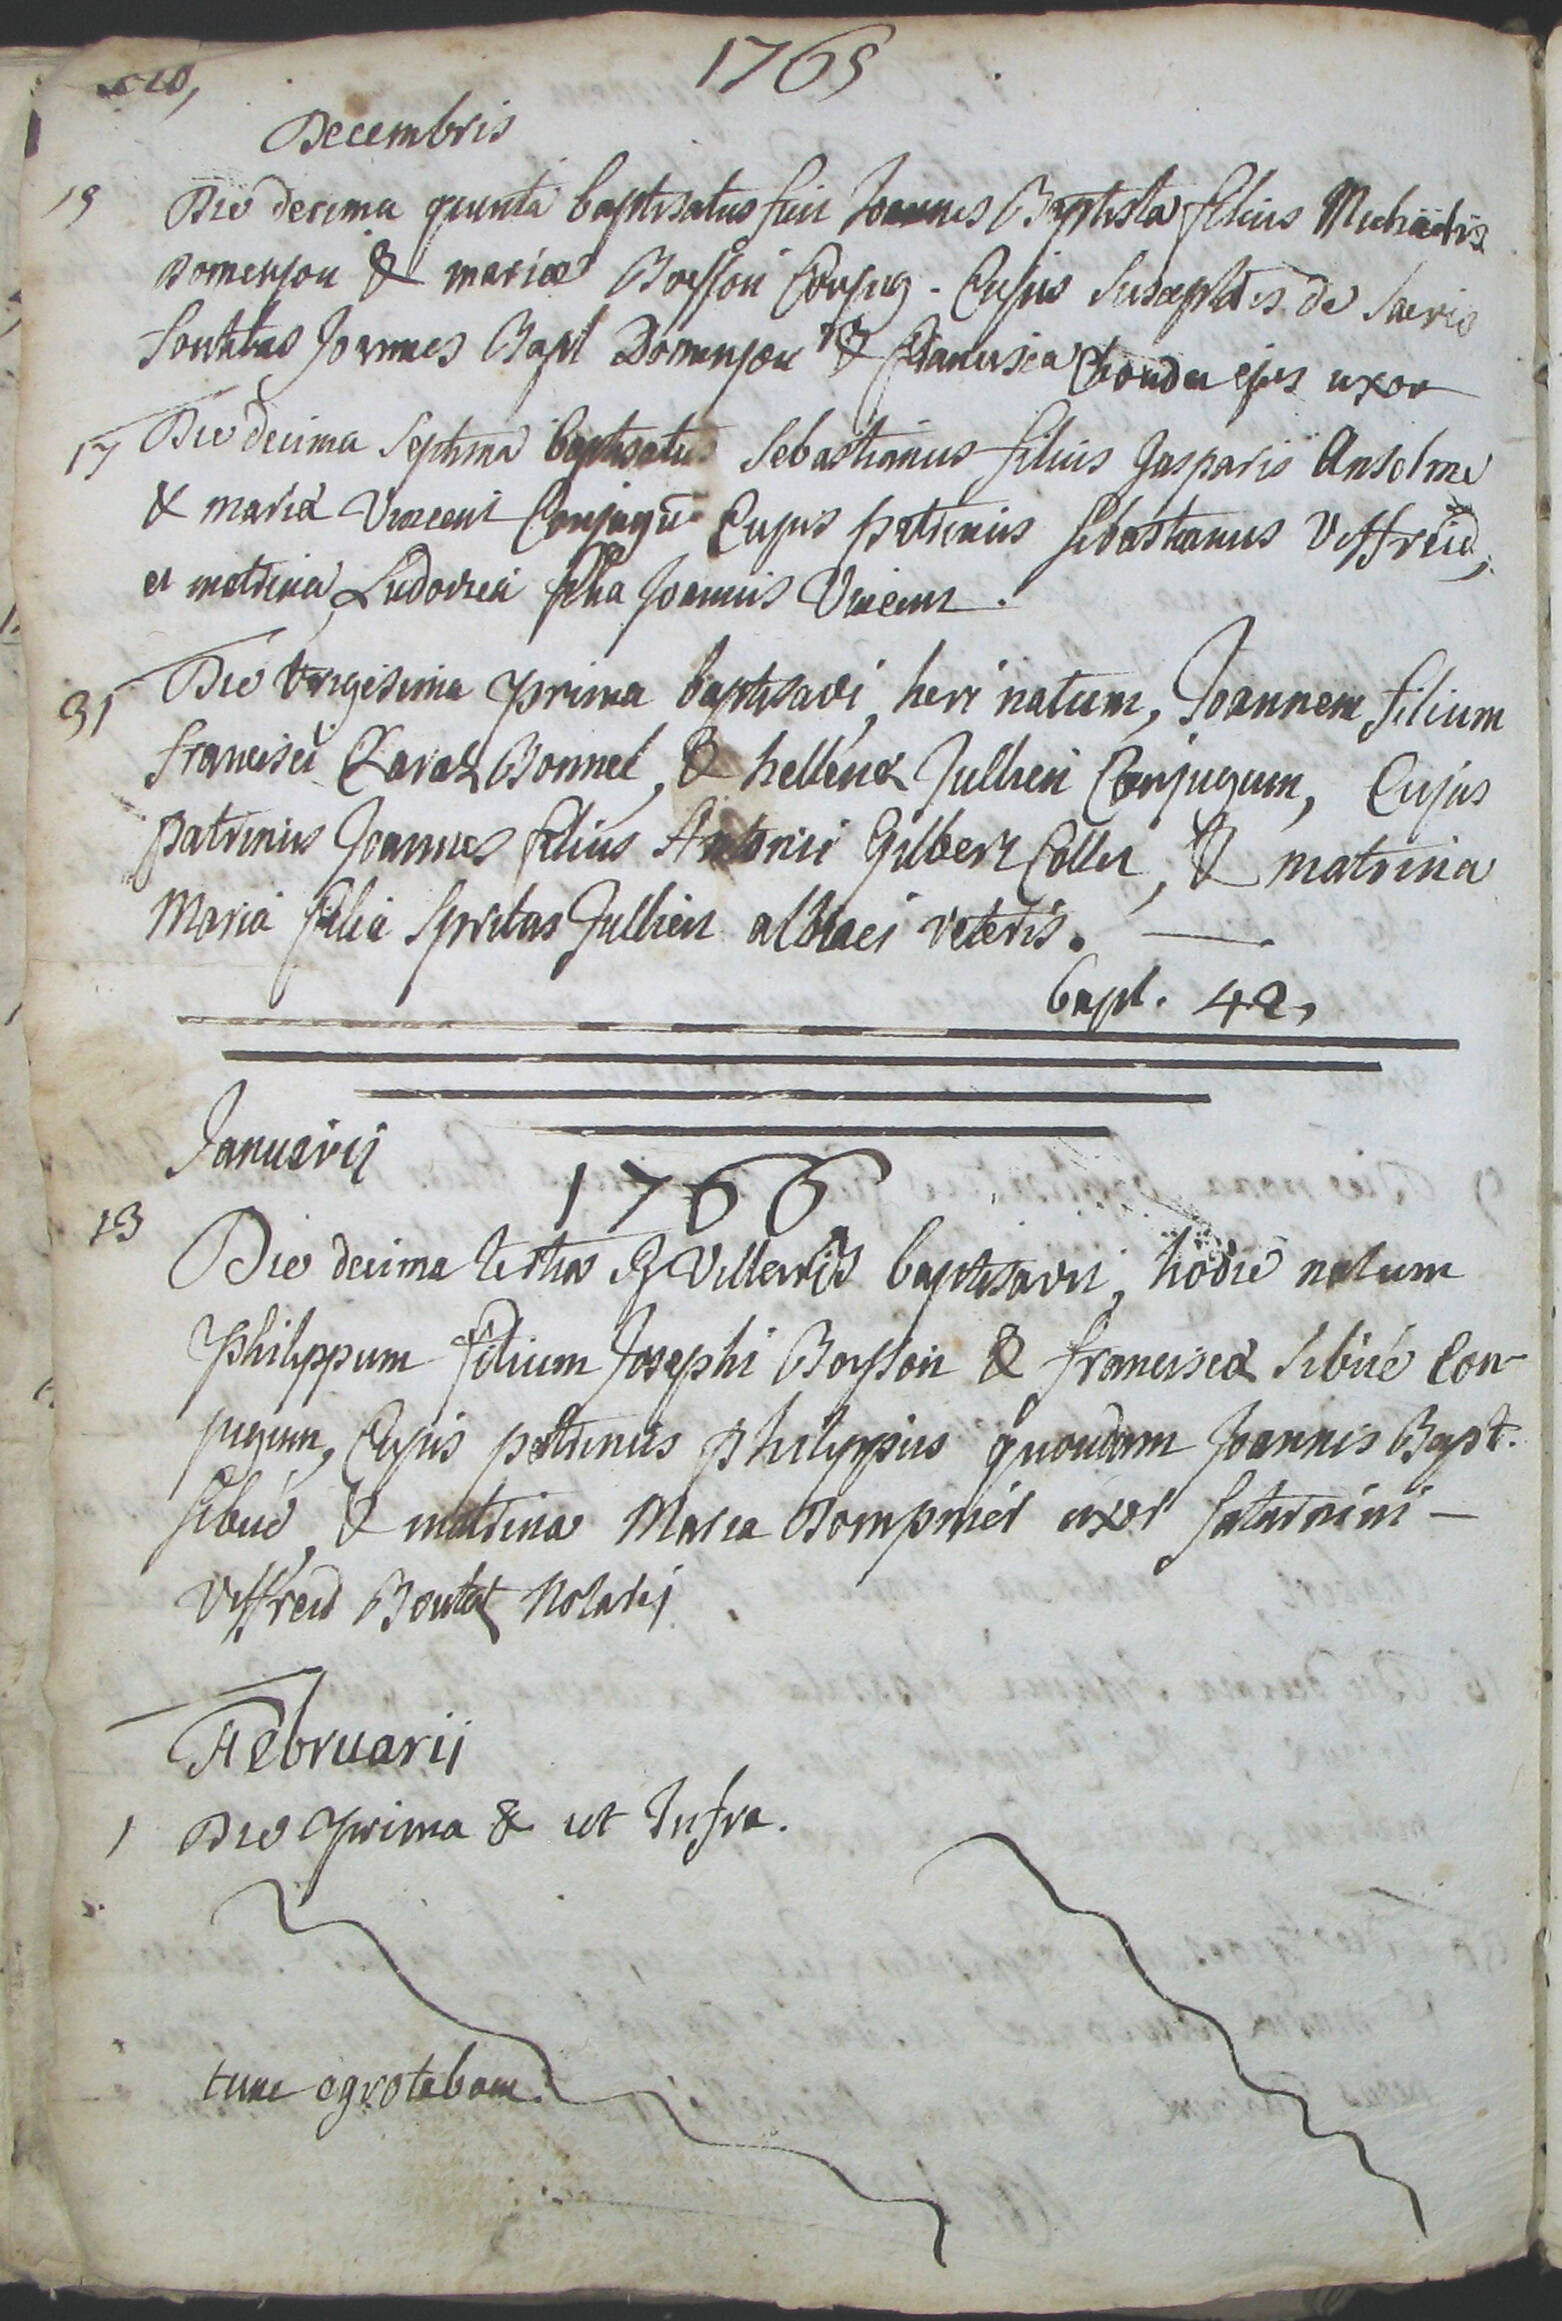 1765
Decembris
15 Die decima quinta baptisatus fuit Joannes Baptista filius Michaelis
Domenjou & mariæ Boesson Conjug. Cujus Suseptores de Sacris
Fontibus Joannes Bapt Domenjou & Francisca ejus uxor
17 Die decima septima baptisatus Sebastianus filius Jasparis Anselme
& mariæ Vincent Conjugū Cujus patrinus Sebastianus Veffreid,
et matrina Ludovica filia Joannis Vincent.
31 Die trigesima prima baptisavi, heri natum, Joannem filium
Francisci Bonnet, & hellenæ Jullien Conjugum, Cujus
patrinus Joannes filius Antonii Gilbert Collet, & matrina
Maria filia Spiritus Jullien albiaci veteris.
bapt. 42,
Januarij
1766
13 Die decima tertia baptisavi, hodie natum
Philippum filium Josephi Boysson & franciscæ Sibué Con-
jugum, Cujus patrinus philippus quondam Joannis Bapt.
Sibué, & matrina Maria Dompnier uxor Saturnini -
Veffreid Boutet Notarij
Februarij
1 Die prima & ut Infra.
tunc egrotabam.